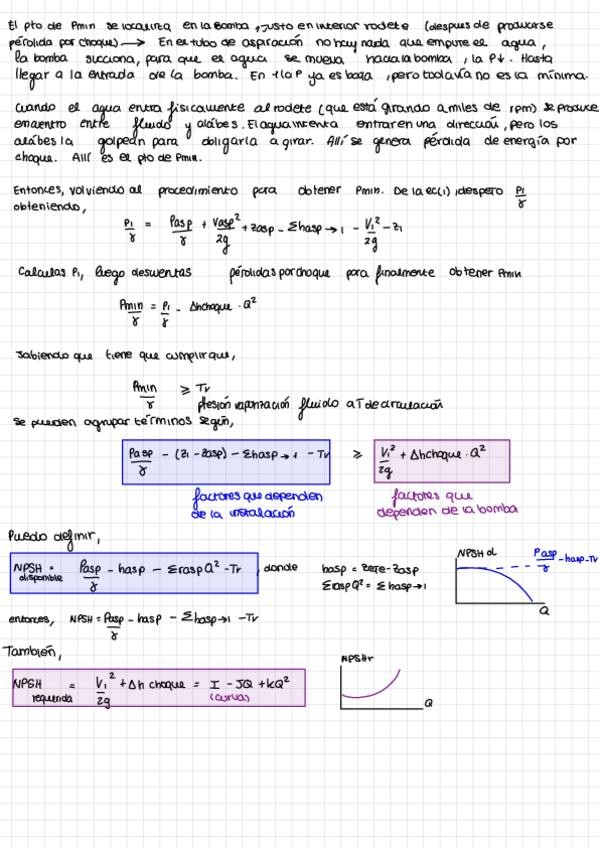 El pto de Pmin se localiza en la Bomba, justo en interior rodete (despues de producirse
pérdida por choque) → En el tubo de aspiración no hay nada que empuje el agua,
la bomba succiona, para que el agua se mueva hacia la bomba, la P↓. Hasta
llegar a la entrada de la bomba. En 1 la P ya es baja, pero todavía no es la mínima.
Cuando el agua entra físicamente al rodete (que está girando a miles de rpm) se produce
encuentro entre fluido y alábes. El agua intenta entrar en una dirección, pero los
alábes la golpean para obligarla a girar. Allí se genera pérdida de energía por
choque. Allí es el pto de Pmin.
Entonces, volviendo al procedimiento para obtener Pmin. De la ec(1), despejo P1/γ
obteniendo,
P1/γ = Pasp/γ + Vasp²/2g + zasp - Σhasp→1 - V1²/2g - z1
Calculas P1, luego descuentas pérdidas por choque para finalmente obtener Pmin
Pmin/γ = P1/γ - Δhchoque · Q²
Sabiendo que tiene que cumplir que,
Pmin/γ ≥ Tv
presión vaporización fluido a T de circulación
Se pueden agrupar términos según,
Pasp/γ - (z1 - zasp) - Σhasp→1 - Tv ≥ V1²/2g + Δhchoque · Q²
factores que dependen de la instalación
factores que dependen de la bomba
Puedo definir,
NPSH disponible = Pasp/γ - hasp - ΣraspQ² - Tv, donde
hasp = zeje - zasp
ΣraspQ² = Σhasp→1
NPSH d
Pasp/γ - hasp - Tv
Q
entonces, NPSH = Pasp/γ - hasp - Σhasp→1 - Tv
También,
NPSH requerida = V1²/2g + Δh choque = I - JQ + kQ²
(curva)
NPSHr
Q